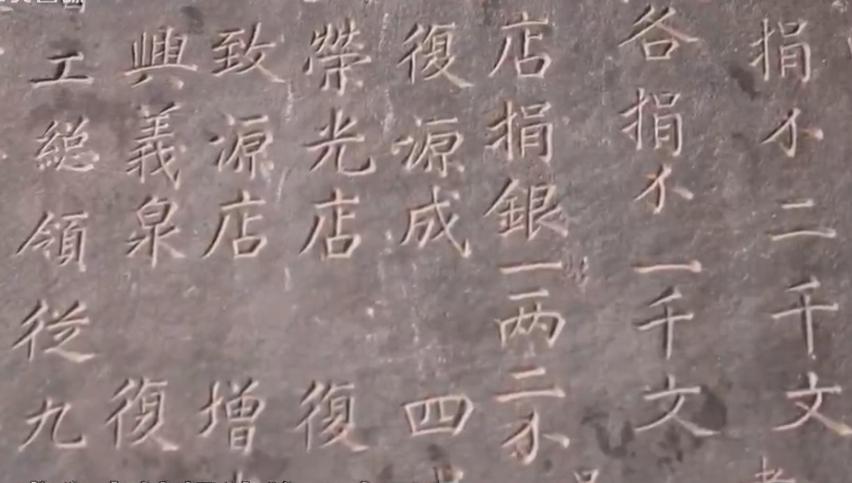 捐不二千文
各捐不一千文
店捐銀一两二不
復源成 四
榮光店 復
致源店 增
興義泉 復
工総領從九